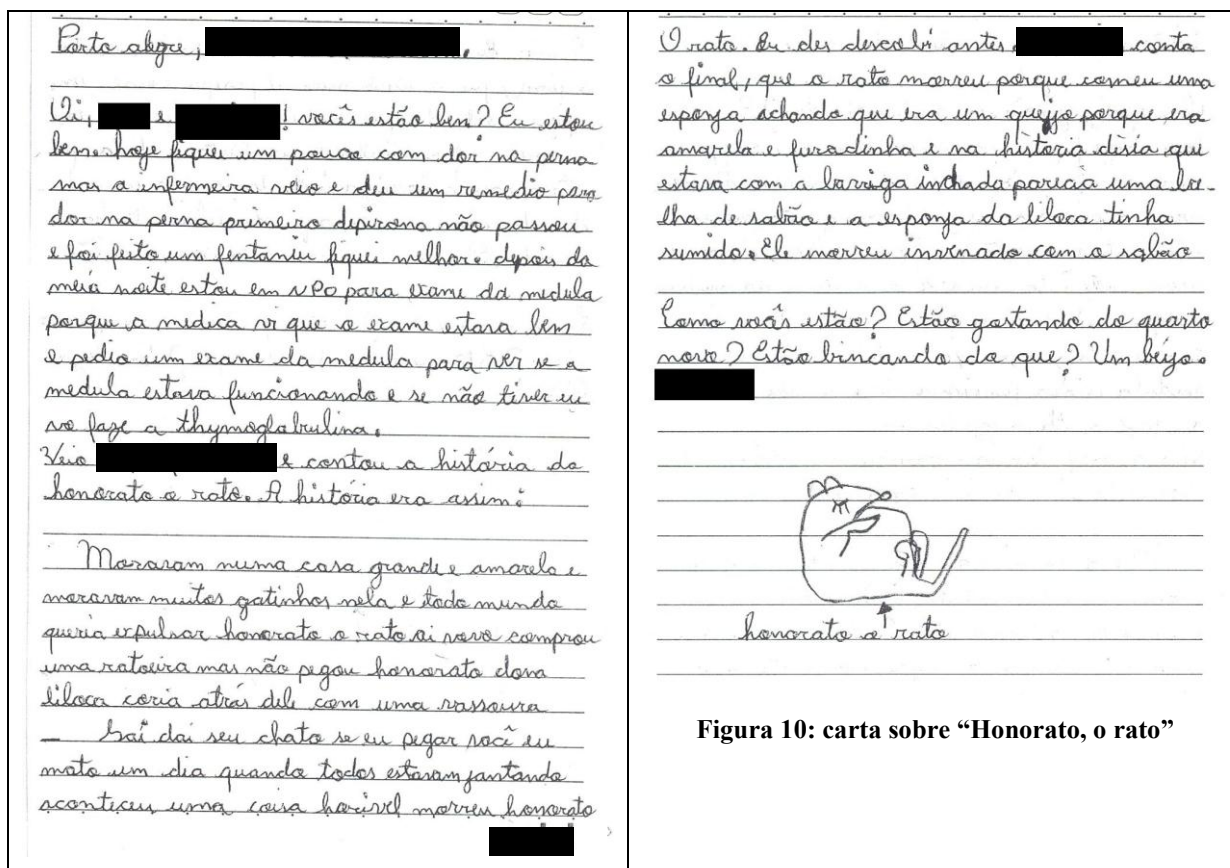 Porto alegre,
Oi, e ! vocês estão bem? Eu estou
bem. hoje fiquei um pouco com dor na perna
mas a enfermeira veio e deu um remedio para
dor na perna primeiro dipirona não passou
e foi feito um fentaniu fiquei melhor. depois da
meia noite estou em NPO para exame da medula
porque a medica vi que o exame estava bem
e pedio um exame da medula para ver se a
medula estava funcionando e se não tiver eu
vo faze a thymoglabrulina.
Veio e contou a história do
honorato o rato. A história era assim:
Moravam numa casa grande e amarela e
moravam muitos gatinhos nela e todo mundo
queria expulsar honorato o rato ai vovo comprou
uma ratoeira mas não pegou honorato dona
liloca coria atrás dele com uma vassoura
_ Sai dai seu chato se eu pegar você eu
mato um dia quando todos estavam jantando
aconteceu uma coisa horivel morreu honorato
O rato. Eu des descobri antes conta
o final, que o rato morreu porque comeu uma
esponja achando que era um queijo porque era
amarela e furadinha e na história disia que
estava com a barriga inchada parecia uma bo-
lha de sabão e a esponja da liloca tinha
sumido. Ele morreu invinado com o sabão
Como vocês estão? Estão gostando do quarto
novo? Estão brincando do que? Um beijo.
honorato o rato
Figura 10: carta sobre “Honorato, o rato”